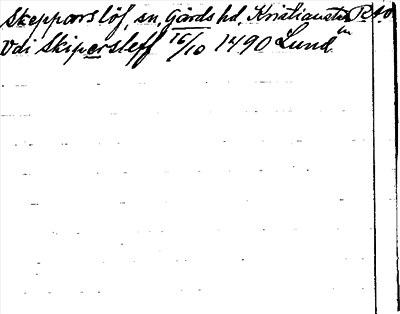 Skepparslöf, sn, Gärds hd, Kristianstds
Vdi Skipersleff 16/10 1490 Lund